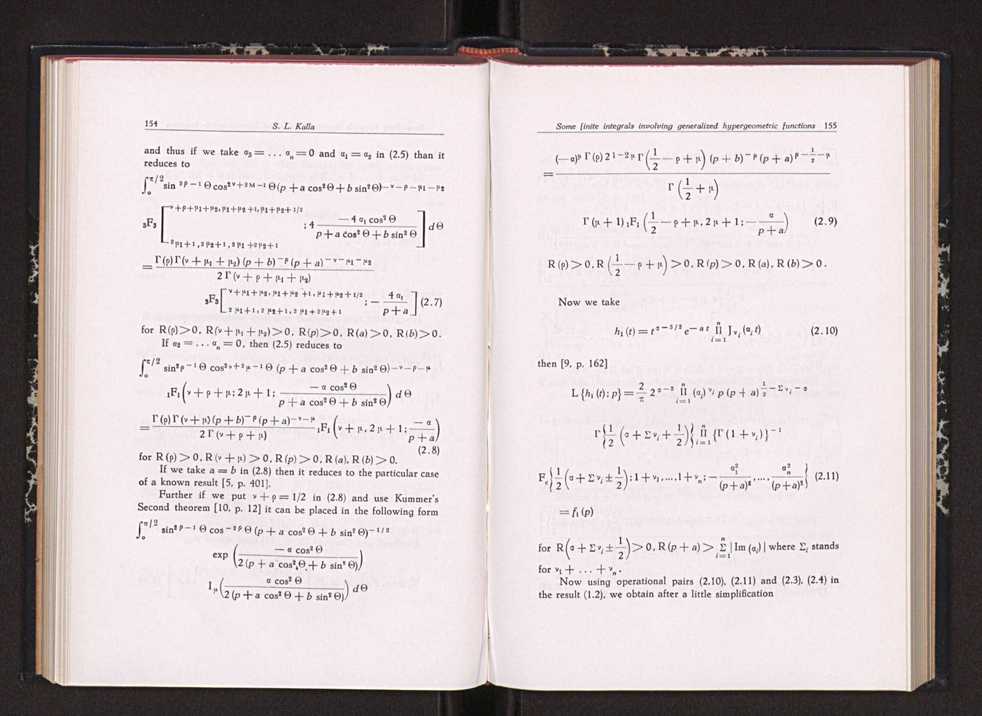 154 S. L. Kalla
and thus if we take α₃ = . . . αₙ = 0 and α₁ = α₂ in (2.5) than it
reduces to
∫ₒ^{π/2} sin^{2ρ−1} Θ cos^{2ν+2M−1} Θ (p + a cos² Θ + b sin² Θ)^{−ν−ρ−μ₁−μ₂}
₃F₃ [ ^{ν+ρ+μ₁+μ₂, μ₁+μ₂+1, μ₁+μ₂+1/2} _{2μ₁+1, 2μ₂+1, 2μ₁+2μ₂+1} ; 4 (−4 α₁ cos² Θ)/(p + a cos² Θ + b sin² Θ) ] d Θ
= (Γ(ρ) Γ(ν + μ₁ + μ₂) (p + b)^{−ρ} (p + a)^{−ν−μ₁−μ₂})/(2 Γ (ν + ρ + μ₁ + μ₂))
₃F₃ [ ^{ν+μ₁+μ₂, μ₁+μ₂+1, μ₁+μ₂+1/2} _{2μ₁+1, 2μ₂+1, 2μ₁+2μ₂+1} ; − (4 α₁)/(p + a) ] (2.7)
for R(ρ) > 0, R(ν + μ₁ + μ₂) > 0, R(p) > 0, R(a) > 0, R(b) > 0.
If α₂ = . . . αₙ = 0, then (2.5) reduces to
∫ₒ^{π/2} sin^{2ρ−1} Θ cos^{2ν+2μ−1} Θ (p + a cos² Θ + b sin² Θ)^{−ν−ρ−μ}
₁F₁ (ν + ρ + μ; 2 μ + 1; (− α cos² Θ)/(p + a cos² Θ + b sin² Θ)) d Θ
= (Γ(ρ) Γ(ν + μ) (p + b)^{−ρ} (p + a)^{−ν−μ})/(2 Γ (ν + ρ + μ)) ₁F₁ (ν + μ, 2 μ + 1; (− α)/(p + a))
(2.8)
for R (ρ) > 0, R (ν + μ) > 0, R (p) > 0, R (a), R (b) > 0.
If we take a = b in (2.8) then it reduces to the particular case
of a known result [5, p. 401].
Further if we put ν + ρ = 1/2 in (2.8) and use Kummer's
Second theorem [10, p. 12] it can be placed in the following form
∫ₒ^{π/2} sin^{2ρ−1} Θ cos^{−2ρ} Θ (p + a cos² Θ + b sin² Θ)^{−1/2}
exp ((− α cos² Θ)/(2 (p + a cos² Θ + b sin² Θ)))
I_μ ((α cos² Θ)/(2 (p + a cos² Θ + b sin² Θ))) d Θ
Some finite integrals involving generalized hypergeometric functions 155
= ((−α)^μ Γ (ρ) 2^{1−2μ} Γ (1/2 − ρ + μ) (p + b)^{−ρ} (p + a)^{ρ−1/2−μ})/(Γ (1/2 + μ))
Γ (μ + 1) ₁F₁ (1/2 − ρ + μ, 2 μ + 1; − α/(p + a)) (2.9)
R (ρ) > 0, R (1/2 − ρ + μ) > 0, R (p) > 0, R (a), R (b) > 0.
Now we take
h₁ (t) = t^{α−3/2} e^{−a t} Π_{i=1}^{n} J_{νᵢ} (αᵢ t) (2.10)
then [9, p. 162]
L {h₁ (t); p} = 2/π 2^{α−2} Π_{i=1}^{n} (αᵢ)^{νᵢ} p (p + a)^{1/2−Σνᵢ−α}
Γ {1/2 (α + Σ νᵢ + 1/2)} Π_{i=1}^{n} {Γ (1 + νᵢ)}^{−1}
F_c {1/2 (α + Σ νᵢ ± 1/2); 1 + ν₁, ..., 1 + νₙ; − α₁²/(p+a)², ..., αₙ²/(p+a)²} (2.11)
= f₁ (p)
for R (α + Σ νᵢ ± 1/2) > 0, R (p + a) > Σ_{i=1}^{n} | Im (αᵢ) | where Σᵢ stands
for ν₁ + . . . + νₙ.
Now using operational pairs (2.10), (2.11) and (2.3), (2.4) in
the result (1.2), we obtain after a little simplification